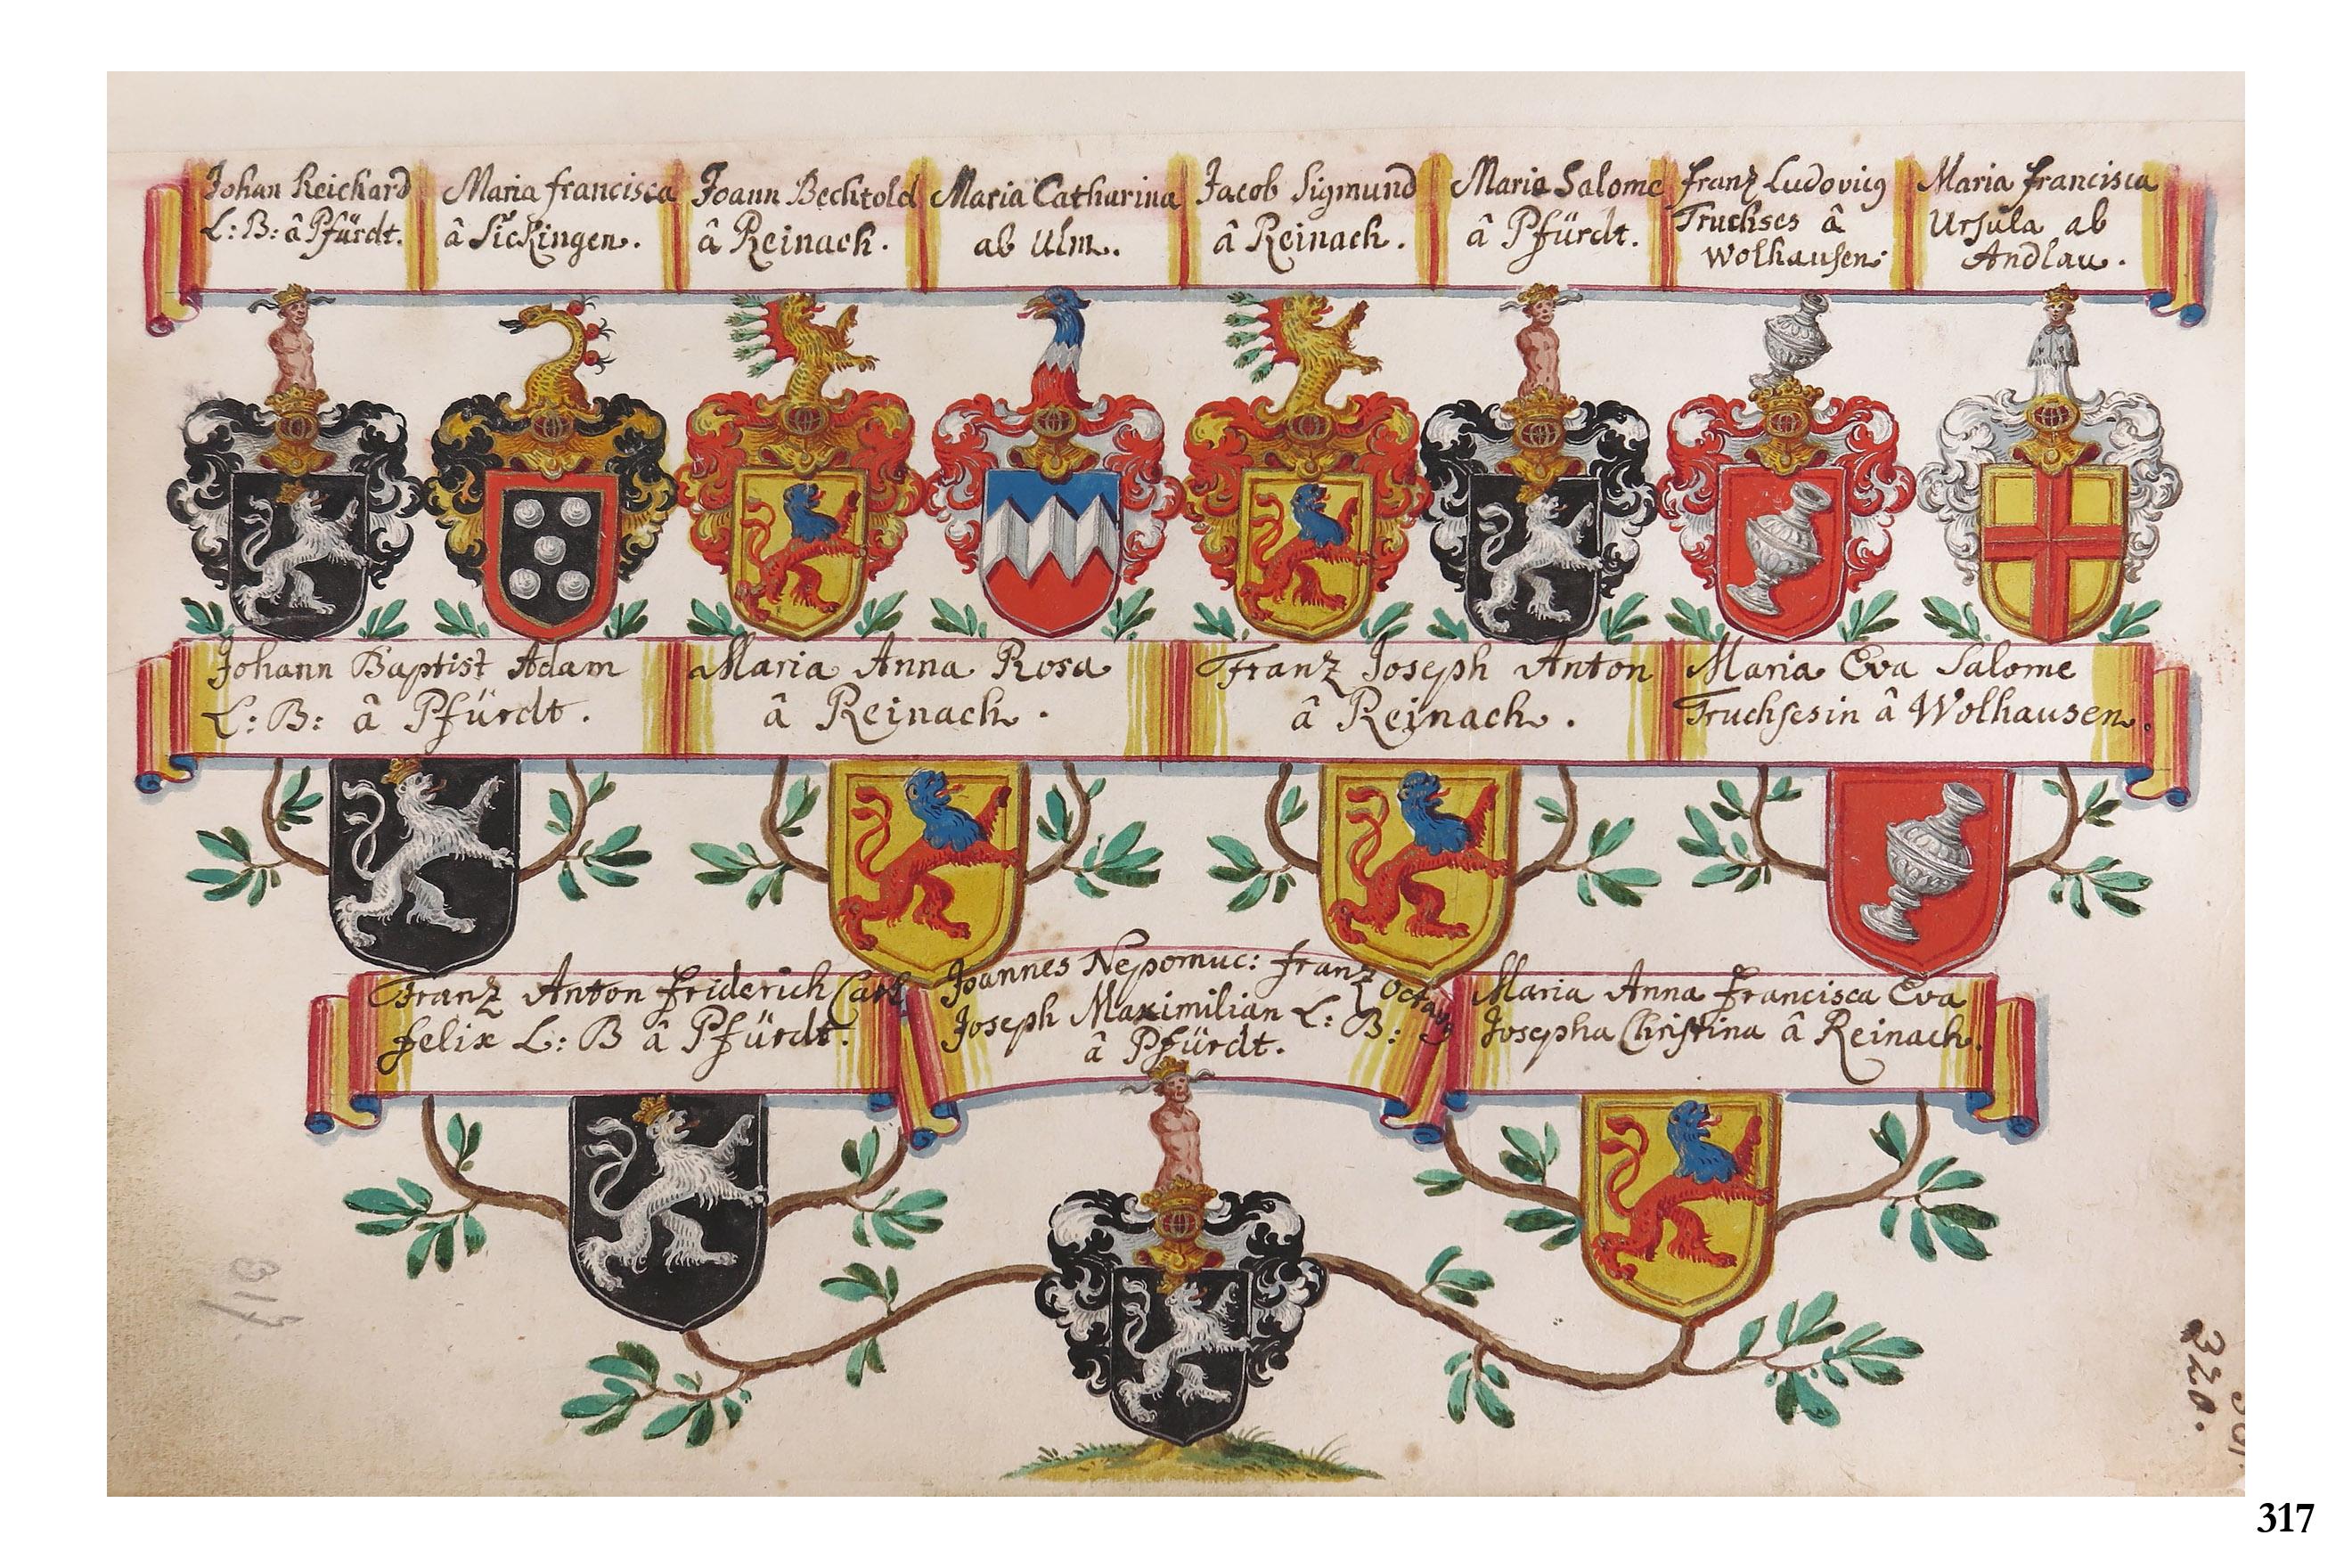 Johan Reichard
L: B: â Pfürdt.
Maria francisca
â Sickingen.
Joann Bechtold
â Reinach.
Maria Catharina
ab Ulm.
Jacob Sigmund
â Reinach.
Maria Salome
â Pfürdt.
franz Ludovicus
Truchses â
Wolhausen
Maria francisca
Ursula ab
Andlau.
Johann Baptist Adam
L: B: â Pfürdt.
Maria Anna Rosa
â Reinach.
Franz Joseph Anton
â Reinach.
Maria Eva Salome
Truchsesin â Wolhausen.
Franz Anton friderich Carl
felix L: B â Pfürdt.
Joannes Nepomuc: franz
Joseph Maximilian L: B:
â Pfürdt.
Maria Anna francisca Eva
Josepha Christina â Reinach.
320.
317